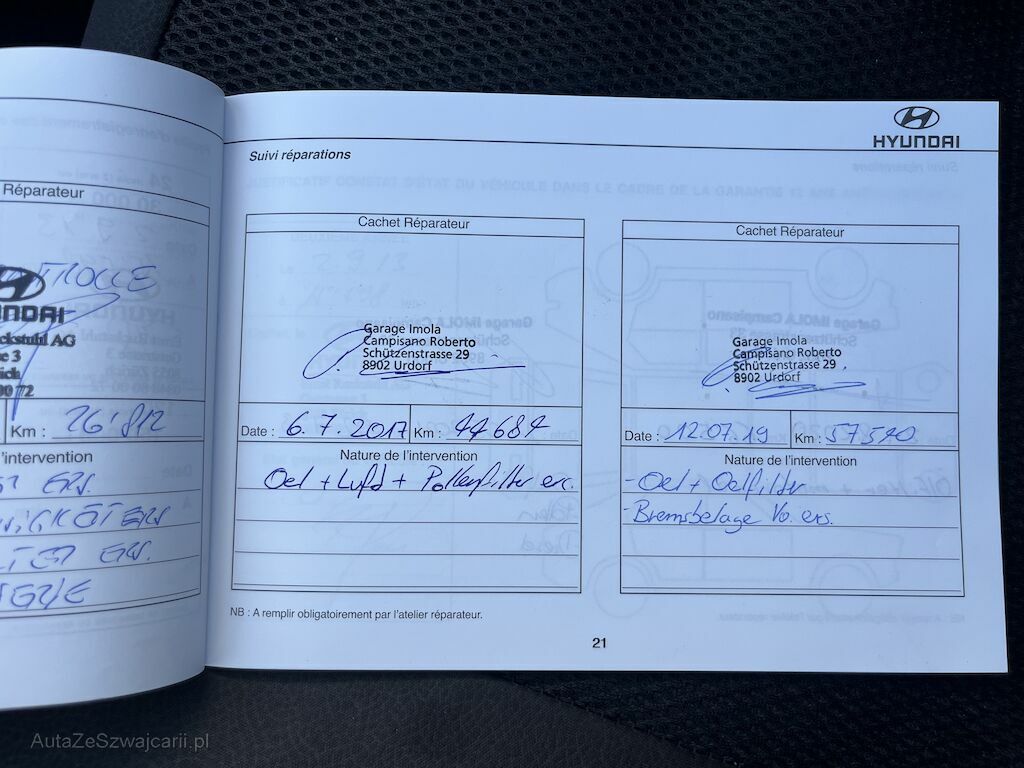 Réparateur
TROLLE
HYUNDAI
ckstuhl AG
se 3
rich
Km : 26'812
l'intervention
ERS.
ERS.
HYUNDAI
Suivi réparations
Cachet Réparateur
Garage Imola
Campisano Roberto
Schützenstrasse 29
8902 Urdorf
Date : 6.7.2017 Km : 44684
Nature de l'intervention
Oel + Luft + Pollenfilter erc.
NB : A remplir obligatoirement par l'atelier réparateur.
Cachet Réparateur
Garage Imola
Campisano Roberto
Schützenstrasse 29
8902 Urdorf
Date : 12.07.19 Km : 57590
Nature de l'intervention
- Oel + Oelfilter
- Bremsbelage Vo. ers.
21
AutaZeSzwajcarii.pl